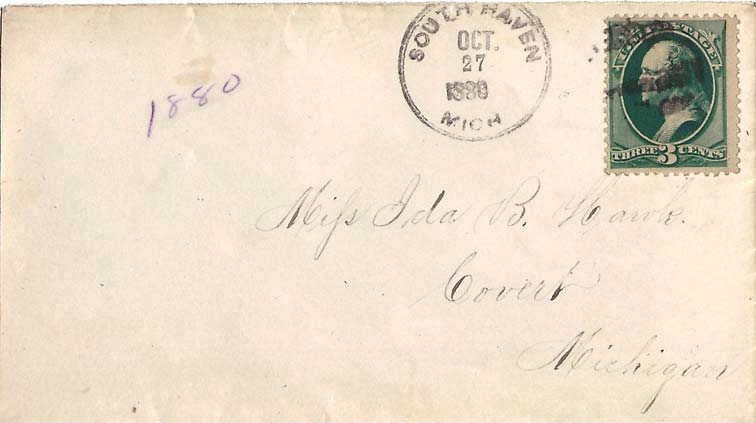 SOUTH HAVEN
OCT.
27
1880
MICH
1880
U.S. POSTAGE
THREE 3 CENTS
Miſs Ida B. Hawk.
Covert
Michigan